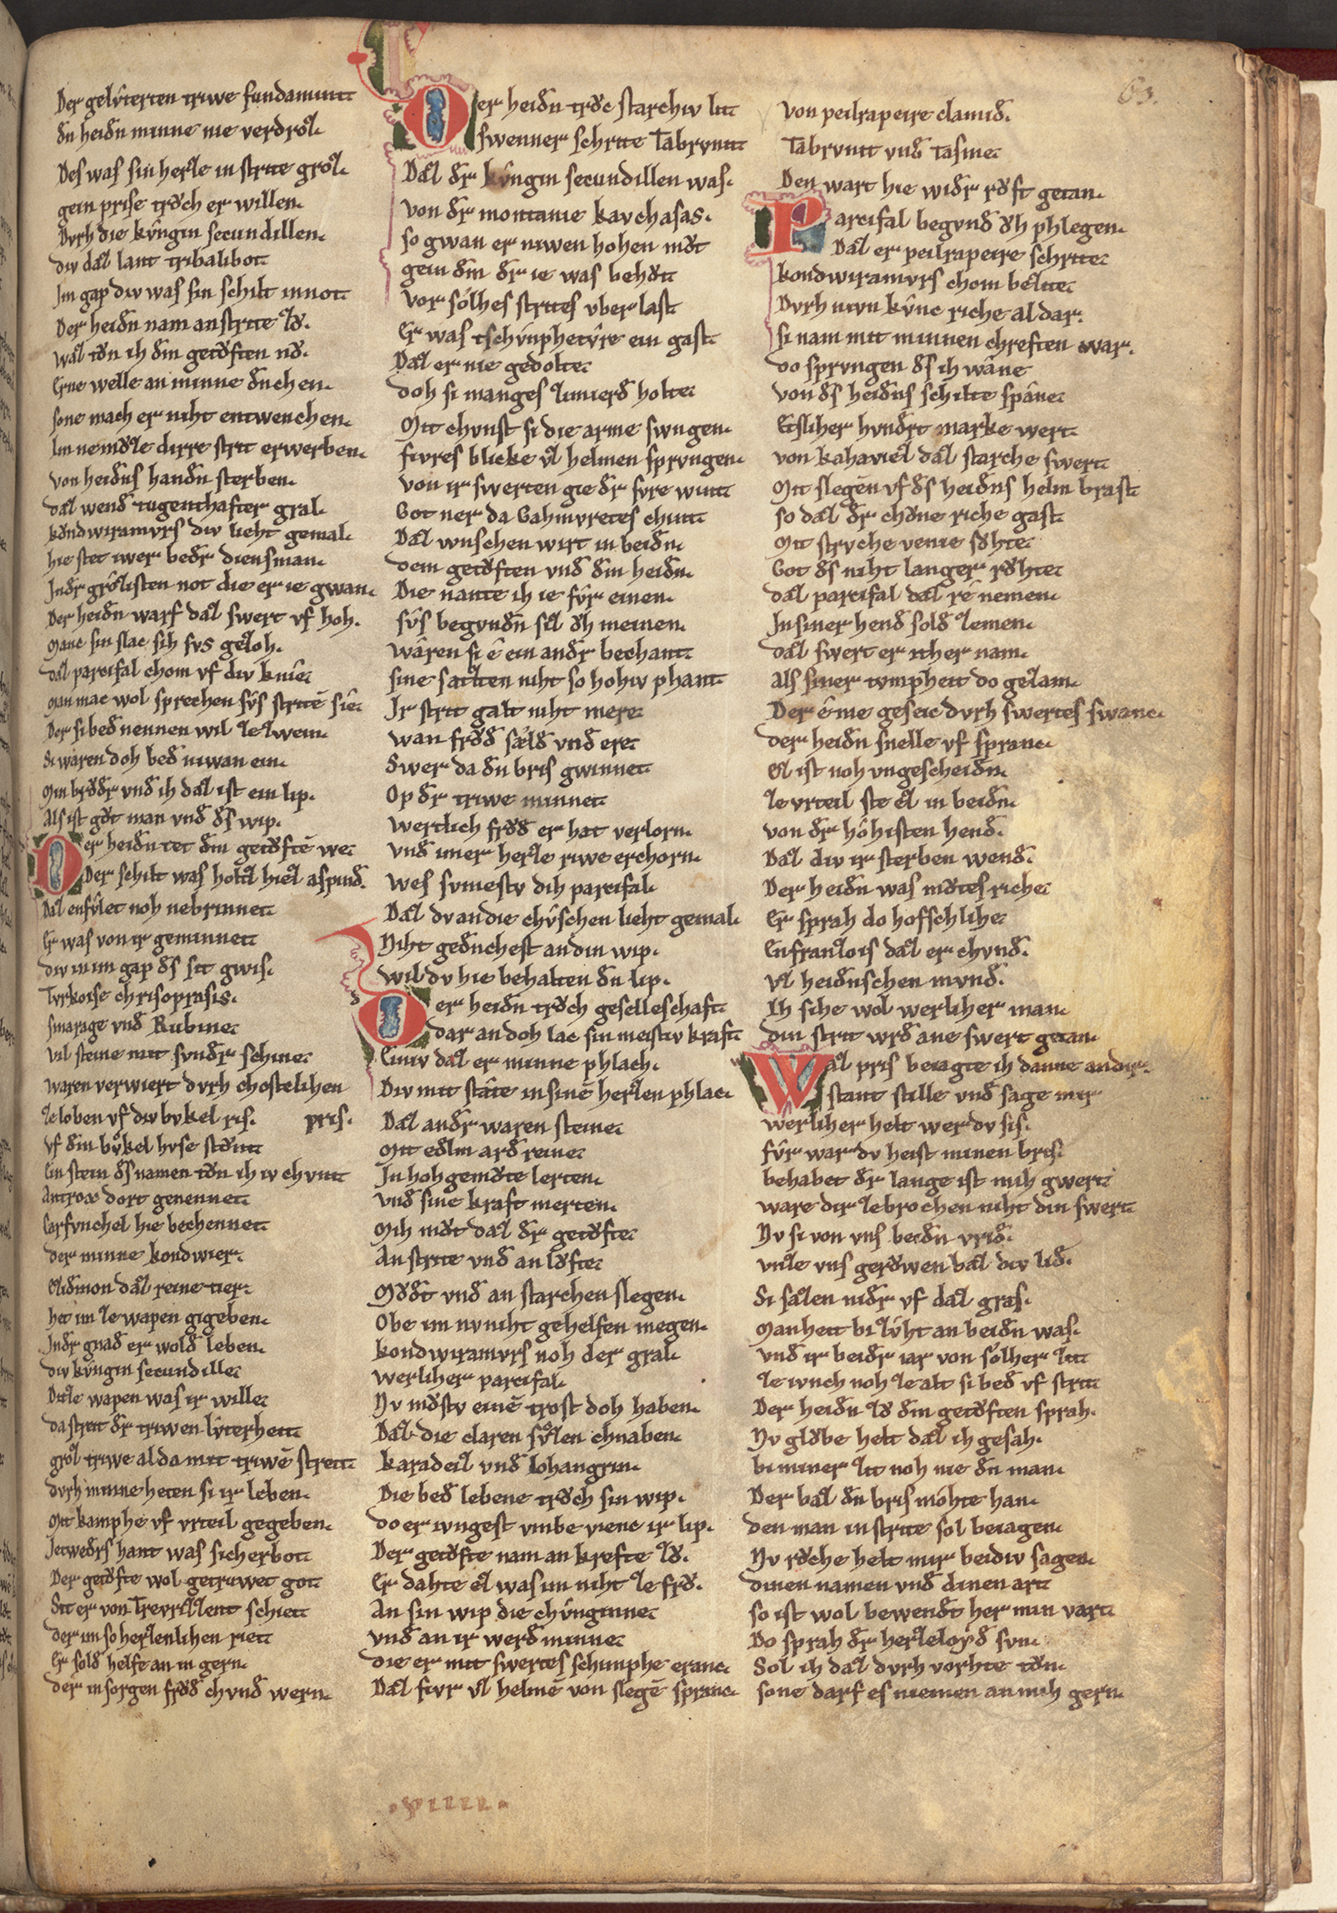 63.
Der gelûterten triwe fundamint
dn̄ heidn̄ minne nie verdroz.
Des was sin herze in strite groz.
gein prise trůch er willen.
Dvrh die kûngin secundillen.
div daz lant tribalibot
Im gap div was sin schilt in not.
Der heidn̄ nam an strite zů.
waz tůn ih dem getoͮften nů.
Erne welle an minne denchen.
sone mach er niht entwenchen.
Im nemůze dirre strit erwerben.
von heidns handn̄ sterben.
daz wend tugenthafter gral.
kondwiramvrs div lieht gemal.
hie stet iwer bedr dienstman.
Indr grôzisten not die er ie gwan.
Der heidn̄ warf daz swert vf hoh.
manc sin slac sih svs gezoh.
daz parcifal chom vf div knie.
man mac wol sprechen sûs striten sie.
Der si bed nennen wil zezwein.
si wâren doh bed niwan ein.
Min brůdr vnd ih daz ist ein lip.
Als ist gůt man vnd ds wip.
Der heidn̄ tet dem getoͮftē we.
Der schilt was holtz hiez aspind.
Daz enfvlet noh nebrinnet.
Er was von ir geminnet
div in im gap ds sit gwis.
Tvrkoise chrisoprasis.
smarage vnd Rubine.
vil steine mit svndr schine.
waren verwiert dvrh chostelihen
ze loben vf div bvkel ris. pris.
vf dem bvkel hvse stůnt
ein stein ds namen tůn ih iv chvnt
Antrox dort genennet.
Carfvnchel hie bechennet.
der minne kondwier.
Ezidmon daz reine tier.
het im ze wapen gigeben.
Indr gnad er wold leben.
div kvngin secundille.
Ditze wapen was ir wille.
da streit dr triwen lûterheit.
groz triwe alda mit triwē streit.
dvrh minne heten si ir leben.
Mit kamphe vf vrteil gegeben.
Ietweders hant was sicherbot.
Der getoͮfte wol getruwet got
Sit er von Trevrizzent schiet
der im so herzenlihen riet
Er sold helfe an in gern.
der in sorgen froͮd chvnd wern.
Der heidn̄ trůc starchiv lit
swenner schrite Tabrvnit
Daz dr kûngin secundillen was.
Von dr montanie kavchasas.
so gwan er niwen hohen můt
gein dem dr ie was behůt
Vor sôlhes strites vber last.
Er was tschvnphetvre ein gast.
Daz er nie gedolte.
doh si manges zimierd holte.
Mit chvnst si die arme swngen.
fivres blicke vz helmen sprvngen.
Von ir swerten gie dr svre wint
Got ner da Gahmvretes chint.
Daz wnschen wirt in beidn̄.
dem getoͮften vnd dem heidn̄.
Die nante ih ie fvr einen.
svs begvndn̄ siz oͮh meinen.
wâren si ê ein andr bechant.
sine satzten niht so hohiv phant
Ir strit galt niht mere.
wan froͮd sæld vnd ere.
Swer da dn̄ bris gwinnet.
Op dr triwe minnet.
Wertlich froͮd er hat verlorn.
Vnd imer herze riwe erchorn.
Wes svmestv dih parcifal.
Daz dv an die chûschen lieht gemal.
Niht gednchest an din wip.
wil dv hie behalten dn̄ lip.
Der heidn̄ trůch geselleschaft.
dar an doh lac sin meistiv kraft
Einiv daz er minne phlach.
Div mit stâte in sinē herzen phlac.
Daz andr waren steine.
Mit edlm ard reine.
In hohgemůte lerten.
Vnd sine kraft merten.
Mih můt daz dr getoͮfte.
An strite vnd an loͮfte.
Můdt vnd an starchen slegen.
Obe im nv niht gehelfen megen.
kondwiramvrs noh der gral.
werliher parcifal.
Nv můstv einē trost doh haben.
Daz die claren sv̂zen chnaben.
karadeiz vnd lohangrin.
Die bed lebene trůch sin wip.
do er ivngest vmbe vienc ir lip.
Der getoͮfte nam an krefte zů.
Er dahte ez was im niht ze frů.
An sin wip die chûnginne.
vnd an ir werd minne.
die er mit swertes schimphe eranc.
Daz fivr vz helmē von slegē spranc.
Von peilrapeire clamid.
Tabrvnit vnd Tasme.
Den wart hie widr růft getan.
Parcifal begvnd oͮh phlegen.
Daz er peilrapeire schrite.
kondwiramvrs chom bezite.
Dvrh nivn kûnc riche aldar.
si nam mit minnen chreften war.
do sprvngen ds ih wâne
von ds heidns schilte spâne.
Etsliher hvndrt marke wert.
von kahaviez daz starche swert.
Mit slegen vf ds heidns helm brast.
so daz dr chůne riche gast.
Mit strvche venie sůhte.
Got ds niht langer růhte.
daz parcifal daz rê nemen.
In siner hend sold zemen.
daz swert er ither nam.
als siner tvmpheit do gezam.
Der ê nie geseic dvrh swertes swanc.
der heidn̄ snelle vf spranc.
Ez ist noh vngescheidn̄.
ze vrteil ste ez in beidn̄.
von dr hôhisten hend.
Daz div ir sterben wend.
Der heidn̄ was můtes riche.
Er sprah do hofschlihe.
Enfranzois daz er chvnd.
vz heidnschen mvnd.
Ih sihe wol werliher man.
din strit wrd ane swert getan.
Waz pris beiagte ih danne an dir.
stant stille vnd sage mir
werliher helt wer dv sis.
fûr war dv heist minen bris.
behabet dr lange ist mih gwert.
ware dir zebrochen niht din swert
Nv si von vns beidn̄ vrid.
vnze vns gerůwen baz div lid.
Si sazen nidr vf daz gras.
Manheit bi zvht an beidn̄ was.
vnd ir beidr iar von solher zit
ze ivnch noh ze alt si bed vf strit.
Der heidn̄ zů dem getoͮften sprah.
Nv gloͮbe helt daz ih gesah.
bi miner zit noh nie dn̄ man.
Der baz dn̄ bris môhte han.
den man in strite sol beiagen.
Nv růche helt mir beidiv sagen.
dinen namen vnd dinen art
so ist wol bewendt her min vart.
Do sprah dr herzeloyd svn.
Sol ih daz dvrh vorhte tůn.
sone darf es niemen an mih gern.
.viiii.